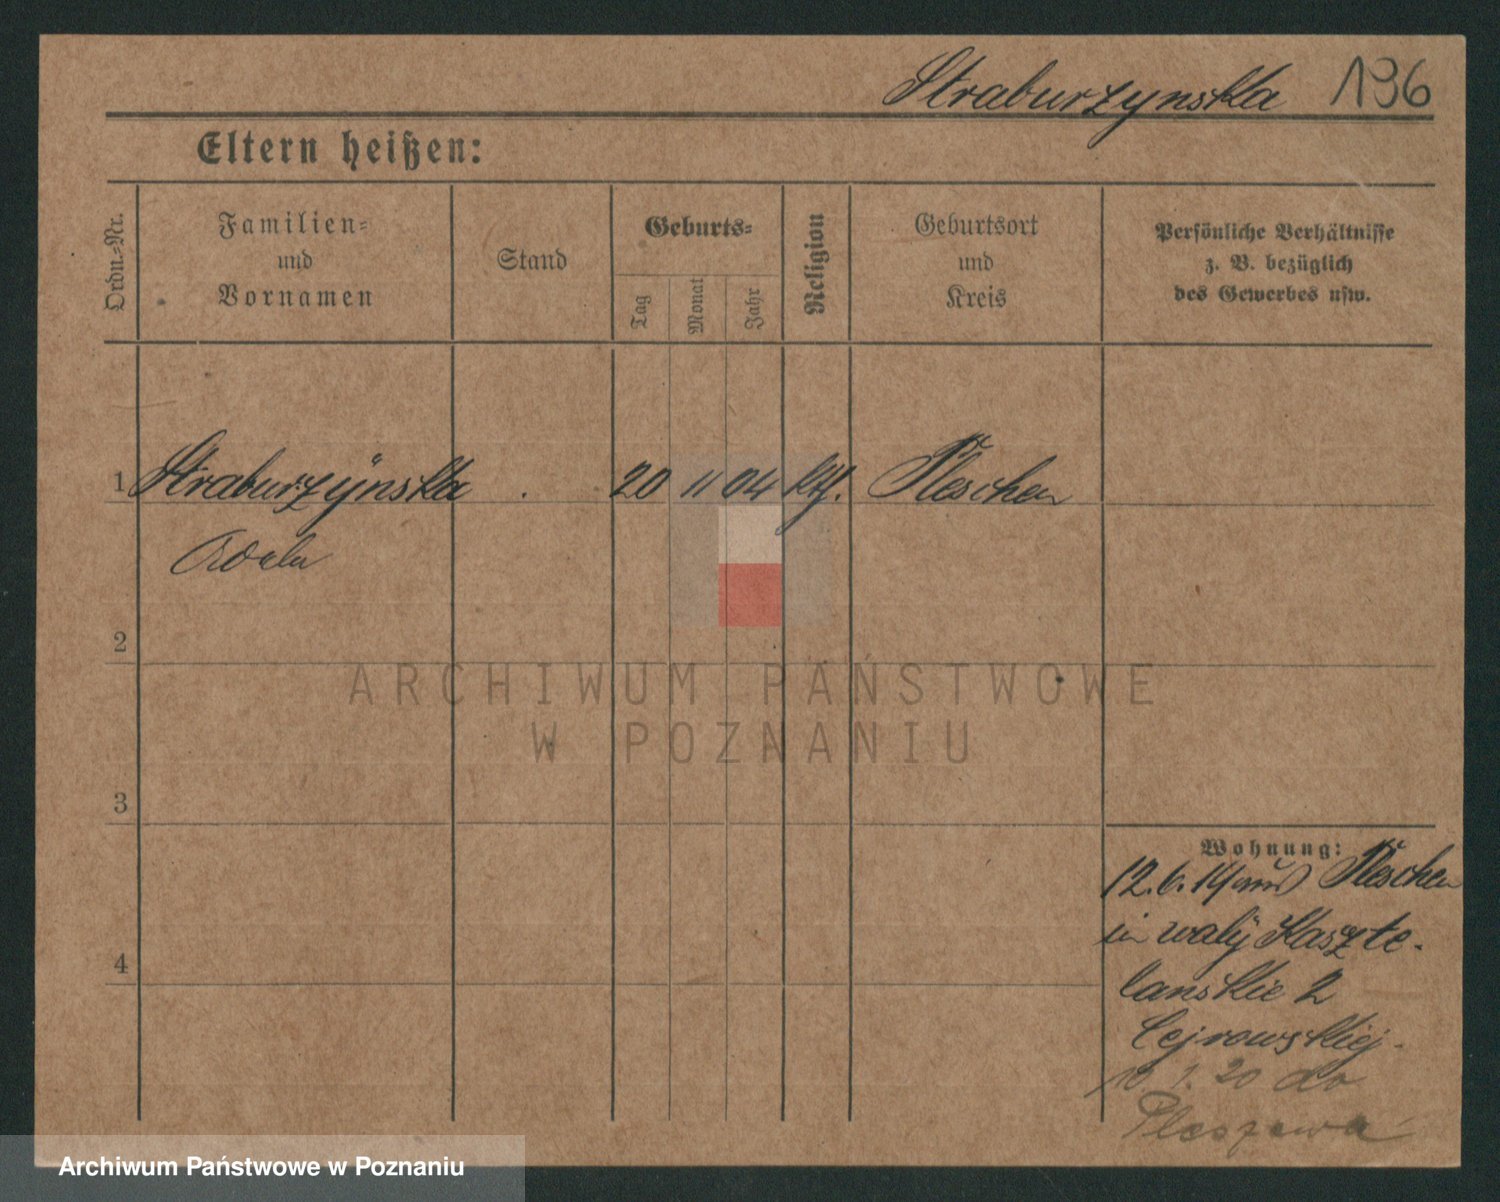 Straburzynska 196
Eltern heißen:
Ordn.-Nr.
Familien-
und
Vornamen
Stand
Geburts-
Tag
Monat
Jahr
Religion
Geburtsort
und
Kreis
Persönliche Verhältnisse
z. B. bezüglich
des Gewerbes usw.
1 Straburzÿnska . 20 11 04 kth. Pleschen
Adela
2
3
4
Wohnung:
12.6.19 aus Pleschen
in walÿ Kaszte-
lanskie 2
Cejrowskiej.
10.1.20 do
Pleszewa
ARCHIWUM PAŃSTWOWE
W POZNANIU
Archiwum Państwowe w Poznaniu